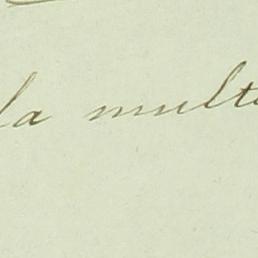 la multa